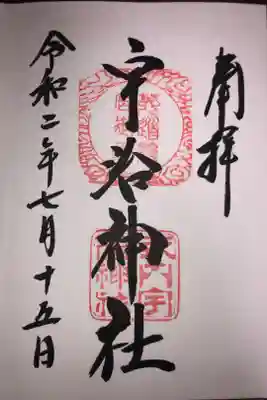 奉拝
宇治神社
令和二年七月十五日